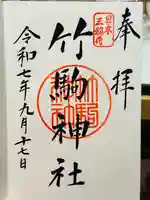 奉拝
日本三稲荷
竹駒神社
令和七年九月十七日